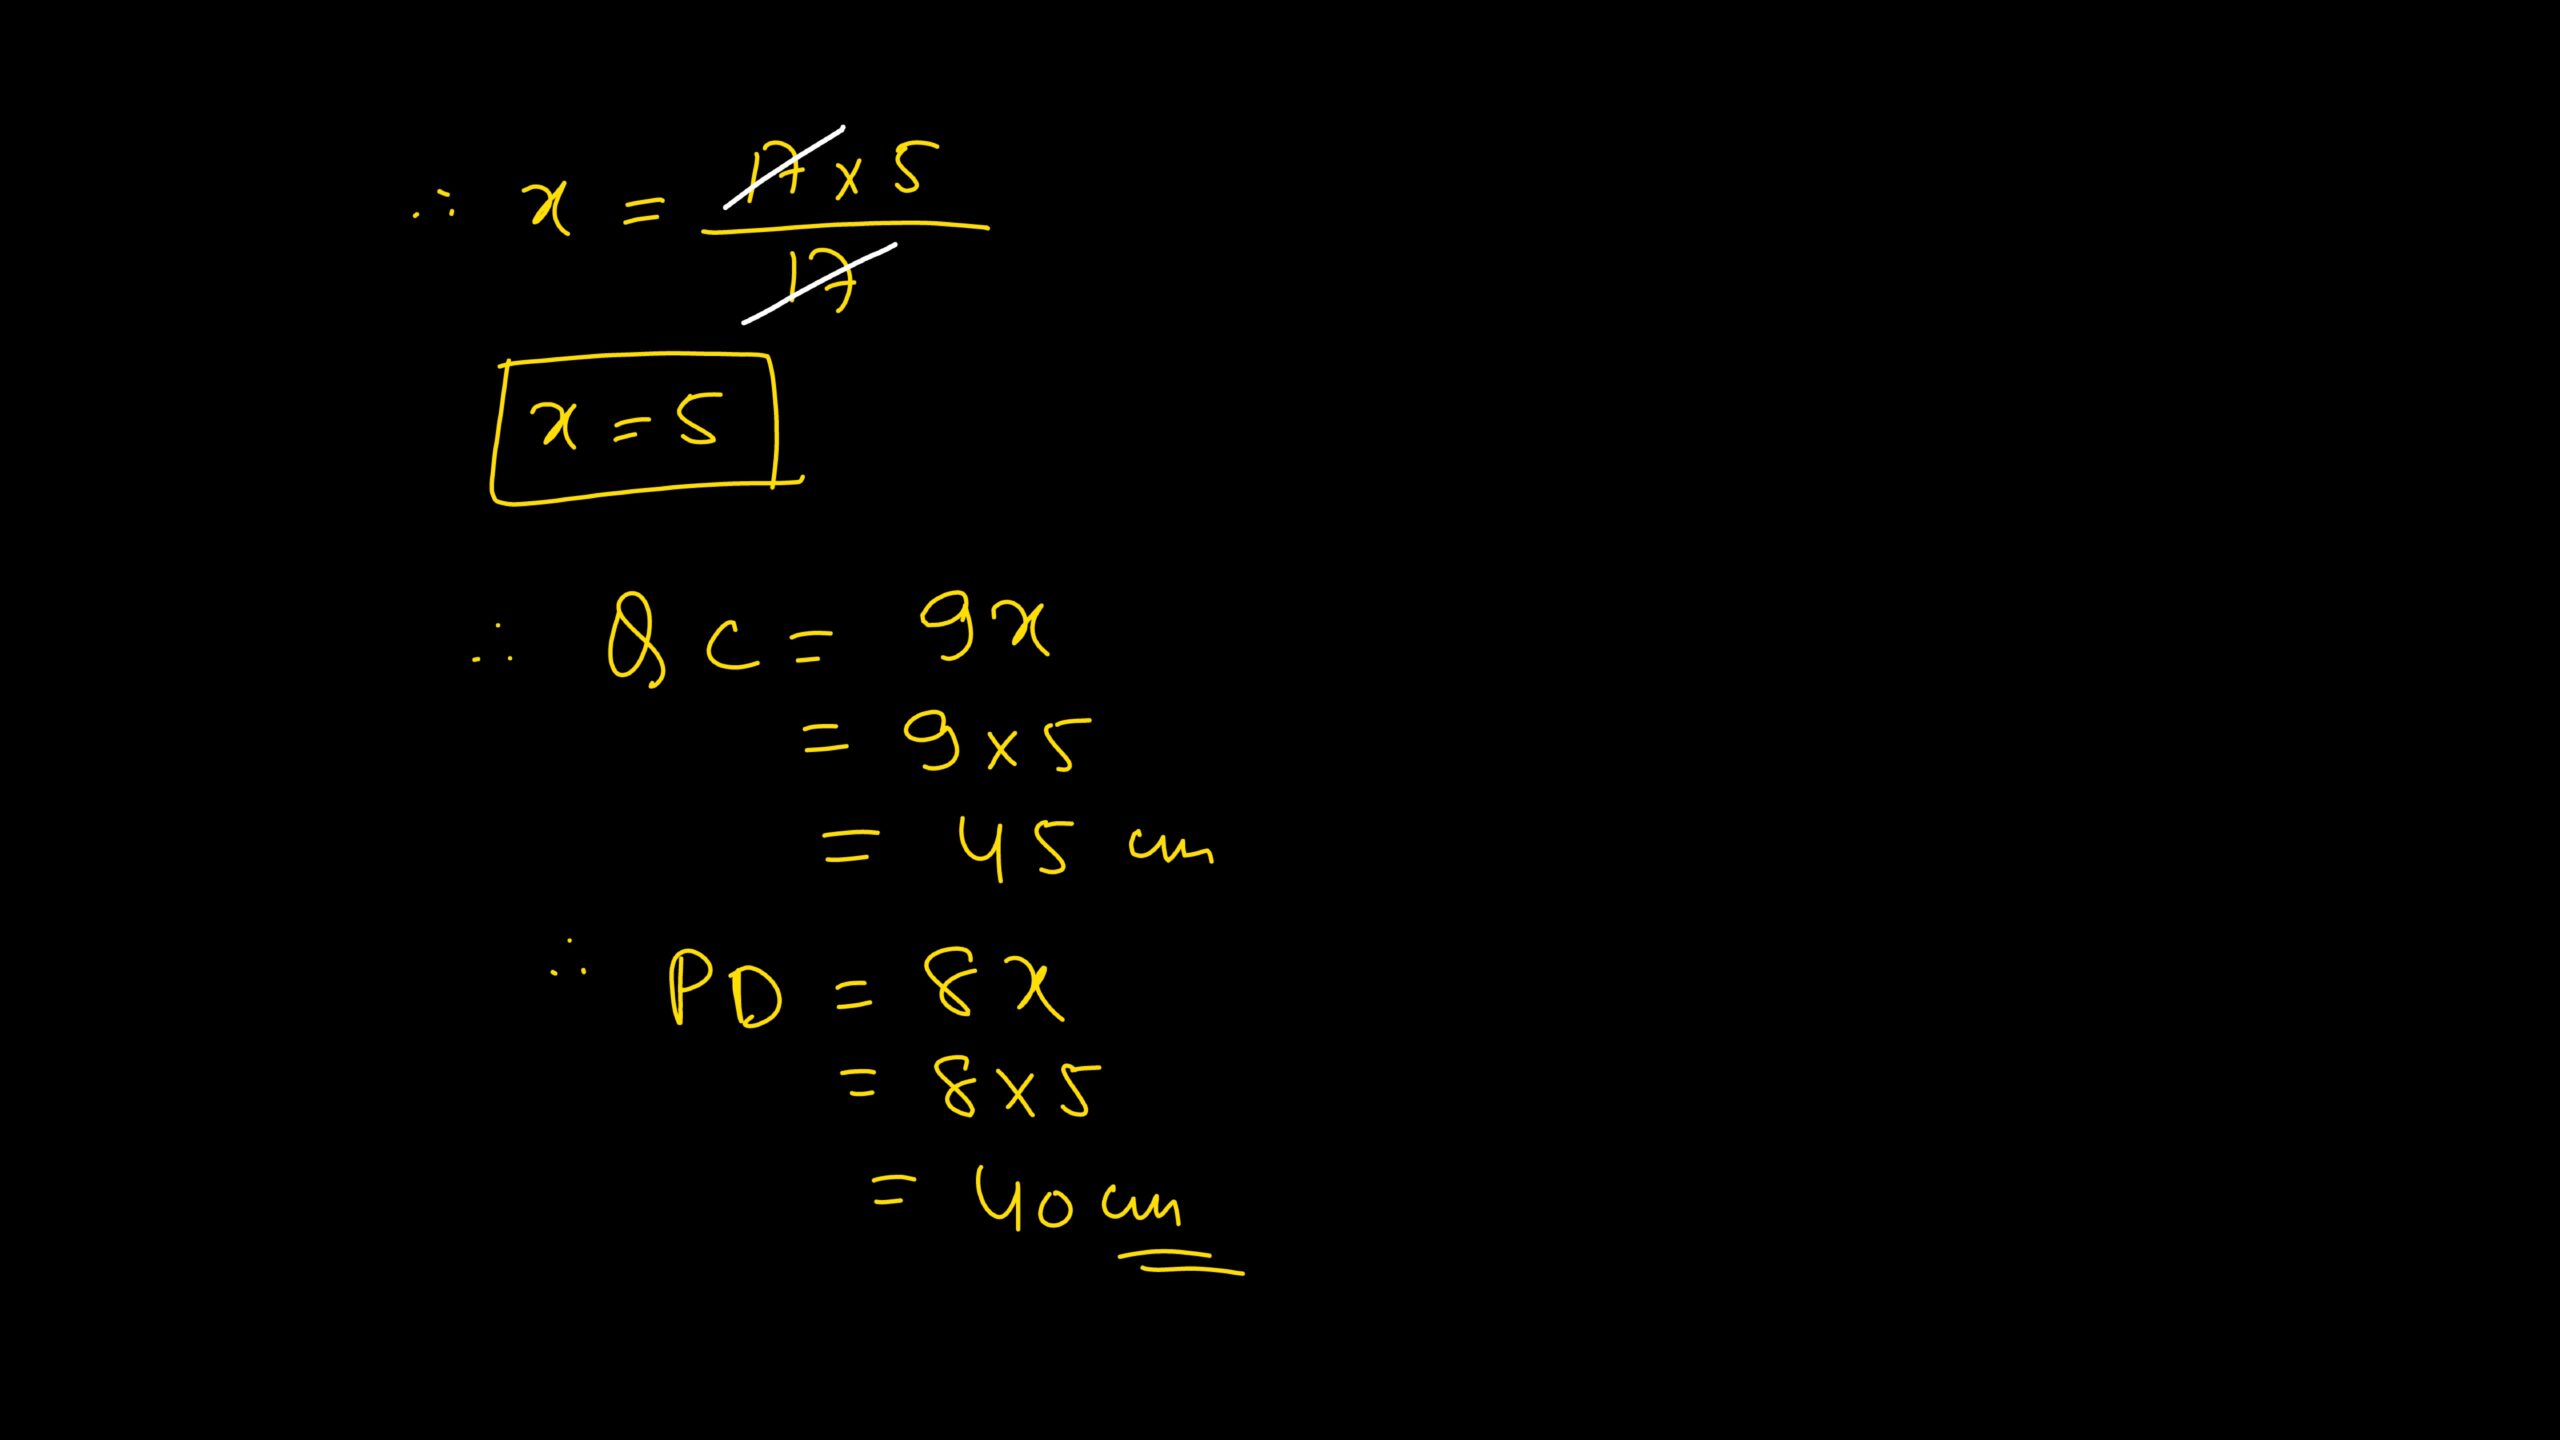 ∴ x = 17 x 5 / 17
x = 5
∴ QC = 9x
= 9 x 5
= 45 cm
∴ PD = 8x
= 8 x 5
= 40 cm